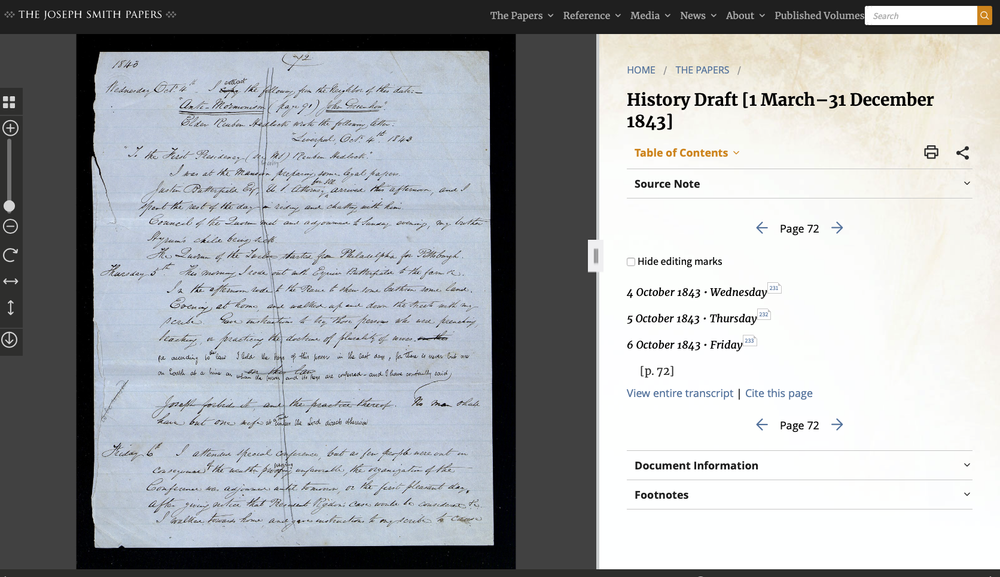 THE JOSEPH SMITH PAPERS
The Papers
Reference
Media
News
About
Published Volumes
Search
1843
72
Wednesday Oct 4th I the following from the Neighbor of this date—
"Anti-Mormonism (page 90) John Greenhow"
Elder Reuben Hedlock wrote the following letter.
"Liverpool, Oct. 4th 1843
"To the First Presidency ( Reuben Hedlock."
I was at the Mansion preparing some legal papers.
Justin Butterfield Esq. U S Attorney for Ill. arrived this afternoon, and I
spent the rest of the day in riding and chatting with him
Council of the Quorum met and adjourned to Sunday evening, my brother
Hyrum's child being sick
The Quorum of the Twelve started from Philadelphia for Pittsburgh.
Thursday 5th This morning I rode out with Esquire Butterfield to the farm &c.
In the afternoon rode to the to show some land.
Evening at home and walked up and down the streets with my
scribe. Gave instruction to try those persons who are preaching
teaching, or practicing the doctrine of plurality of wives.
for according to the law I hold the keys of this power in the last days, for there is never but one
on Earth at a time on whom the power and its keys are conferred—and I have continually said
Joseph forbids it, and the practice thereof. No man shall
have but one wife at a time unless the Lord directs otherwise
Friday 6th I attended special conference, but as few people were out in
consequence of the weather proving unfavorable, the organization of the
Conference was adjourned until tomorrow, or the first pleasant day,
after giving notice that President Rigdon case would be considered &c
I walked towards home and gave instruction to my scribe to cause
HOME / THE PAPERS /
History Draft [1 March–31 December
1843]
Table of Contents
Source Note
Page 72
Hide editing marks
4 October 1843 • Wednesday 231
5 October 1843 • Thursday 232
6 October 1843 • Friday 233
[p. 72]
View entire transcript | Cite this page
Page 72
Document Information
Footnotes